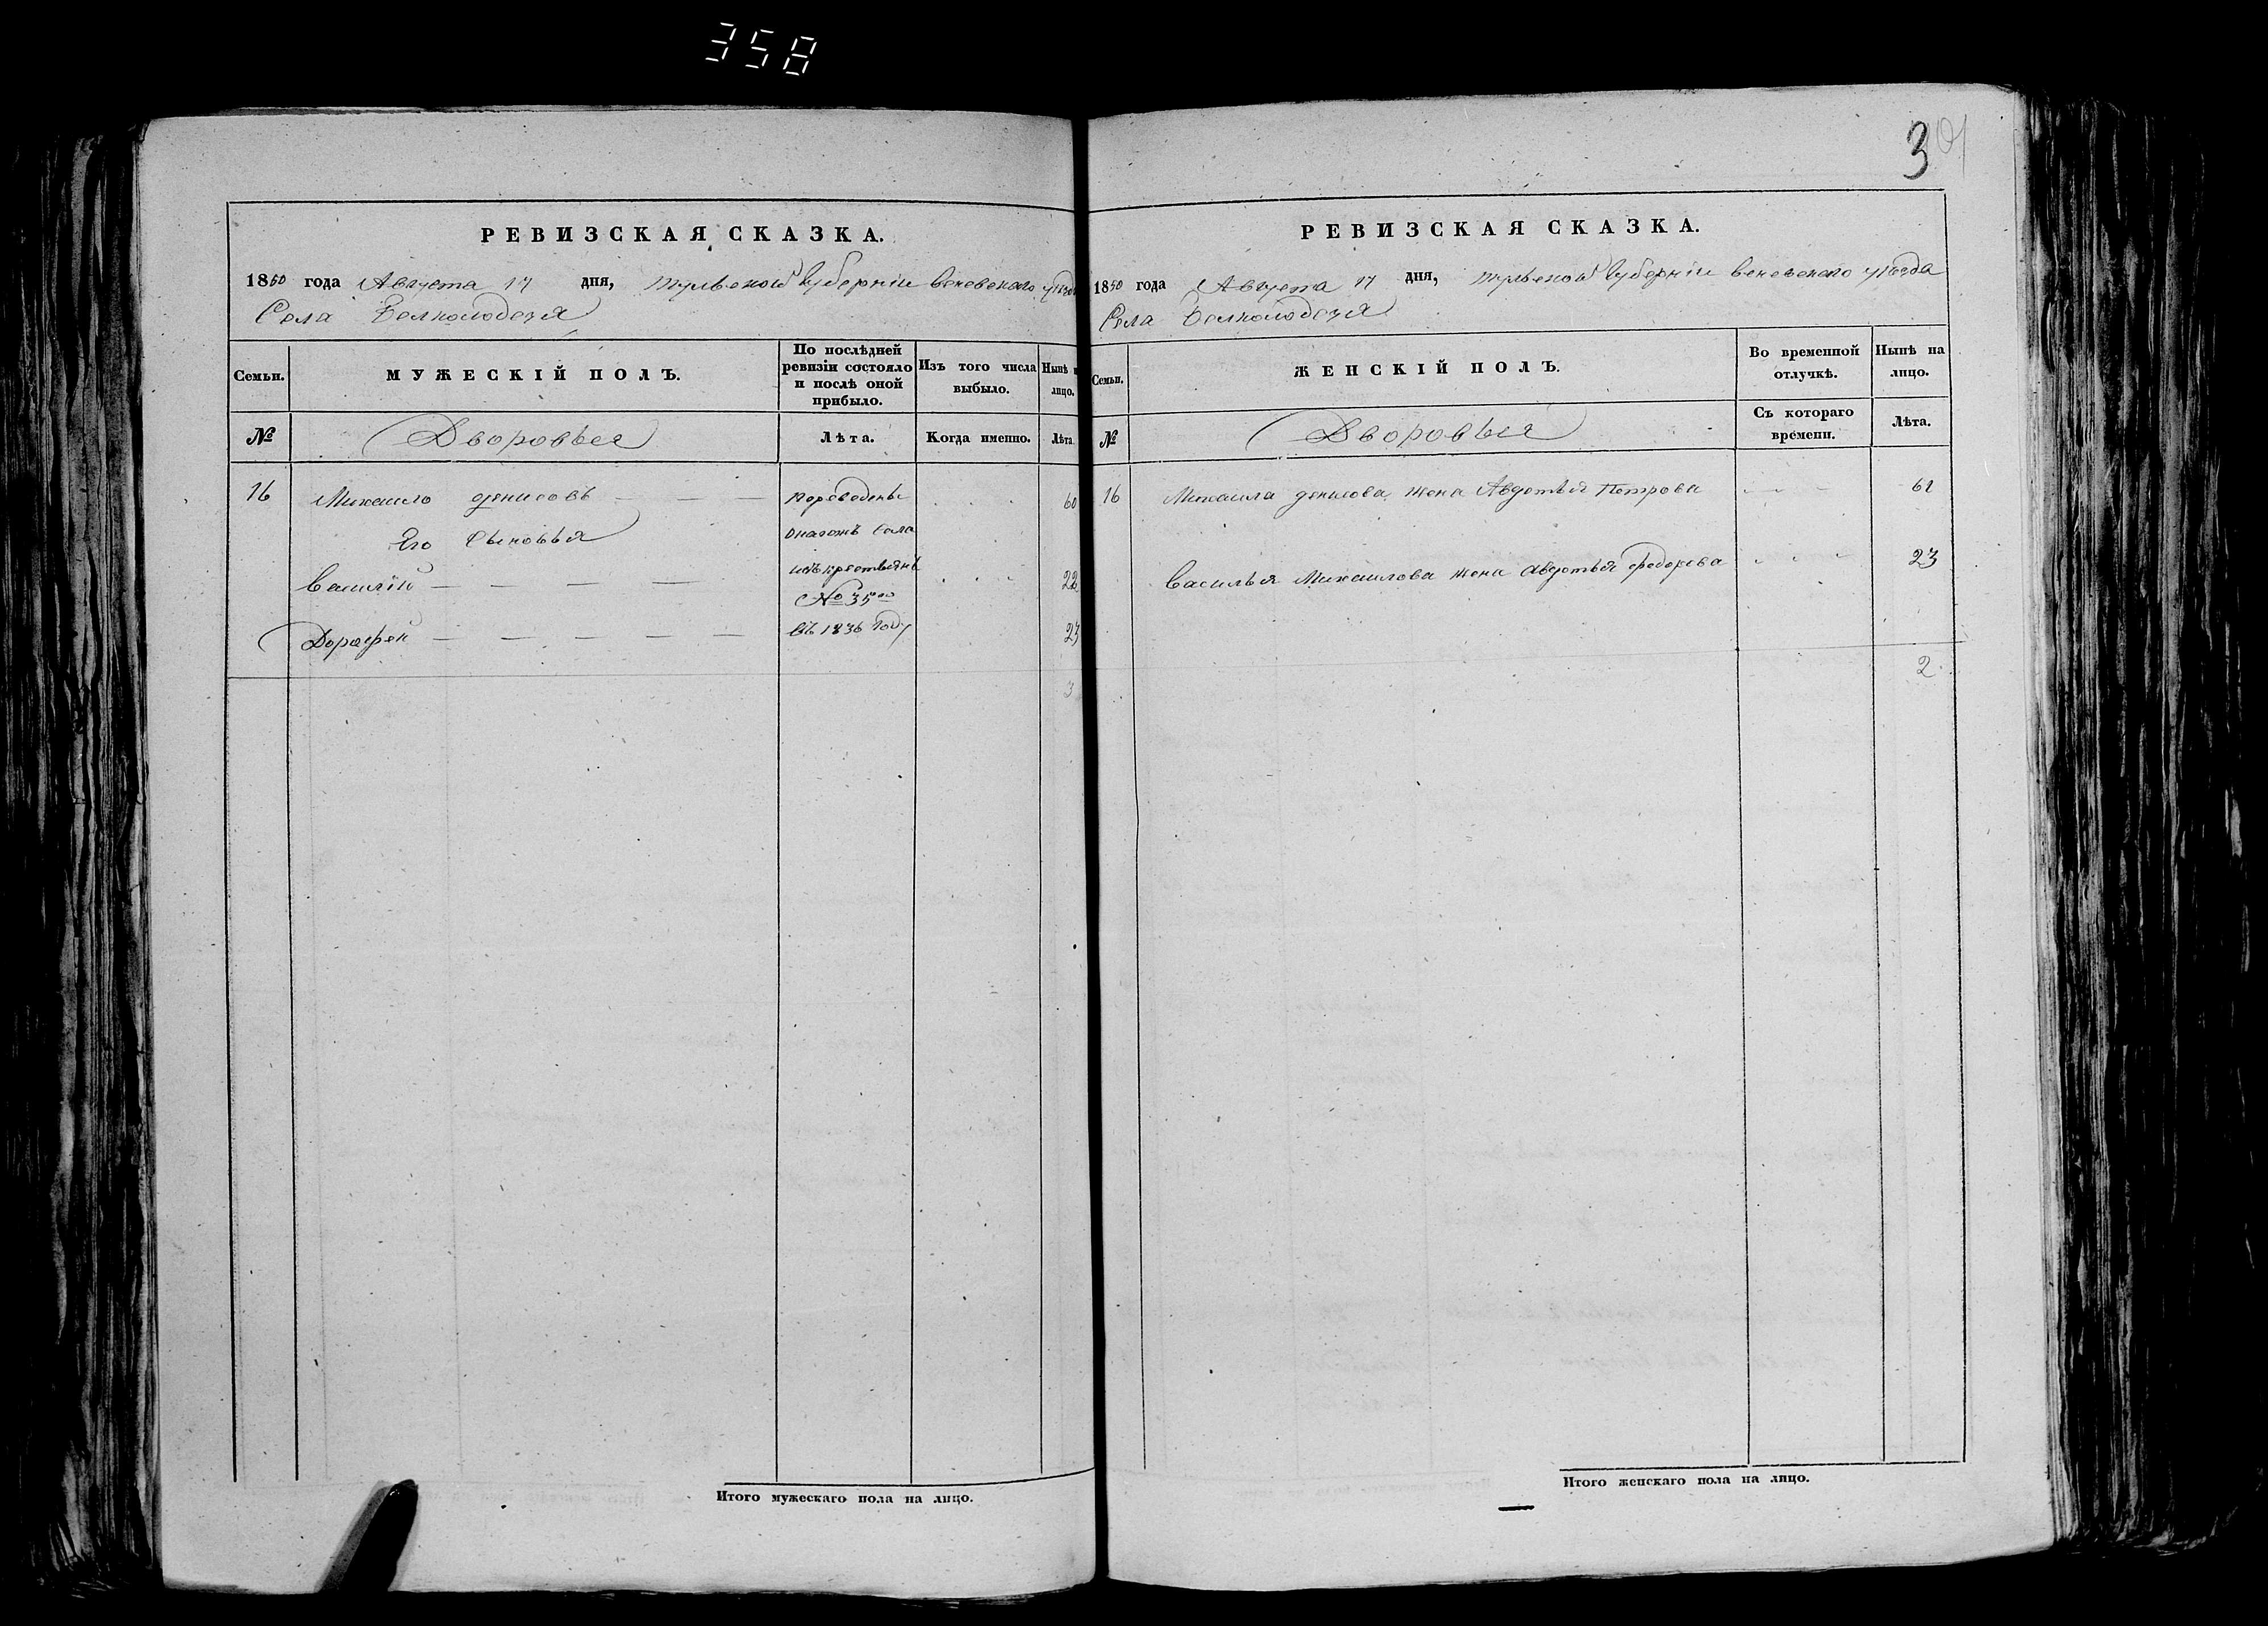 358
3
РЕВИЗСКАЯ СКАЗКА.
1850 года Августа 17 дня, тульской Губерніи веневскаго уѣзда
Села Белколодезя
Семьи.
МУЖЕСКІЙ ПОЛЪ.
По послѣдней ревизіи состояло и послѣ оной прибыло.
Изъ того числа выбыло.
Нынѣ на лицо.
№
Дворовыя
Лѣта.
Когда именно.
Лѣта.
16 Михаило денисовъ — — — переведены 60
Его Сыновья села
Василій — — — — изъ крестьянъ 22
№ 35
Дорофей — — — — — въ 1836 году 23
3
Итого мужескаго пола на лицо.
РЕВИЗСКАЯ СКАЗКА.
1850 года Августа 17 дня, тульской Губерніи веневскаго уѣзда
Села Белколодезя
Семьи.
ЖЕНСКІЙ ПОЛЪ.
Во временной отлучкѣ.
Нынѣ на лицо.
№
Дворовыя
Съ котораго времени.
Лѣта.
16 Михаила денисова жена Авдотья Петрова 61
Василья Михаилова жена авдотья федорова 23
2
Итого женскаго пола на лицо.